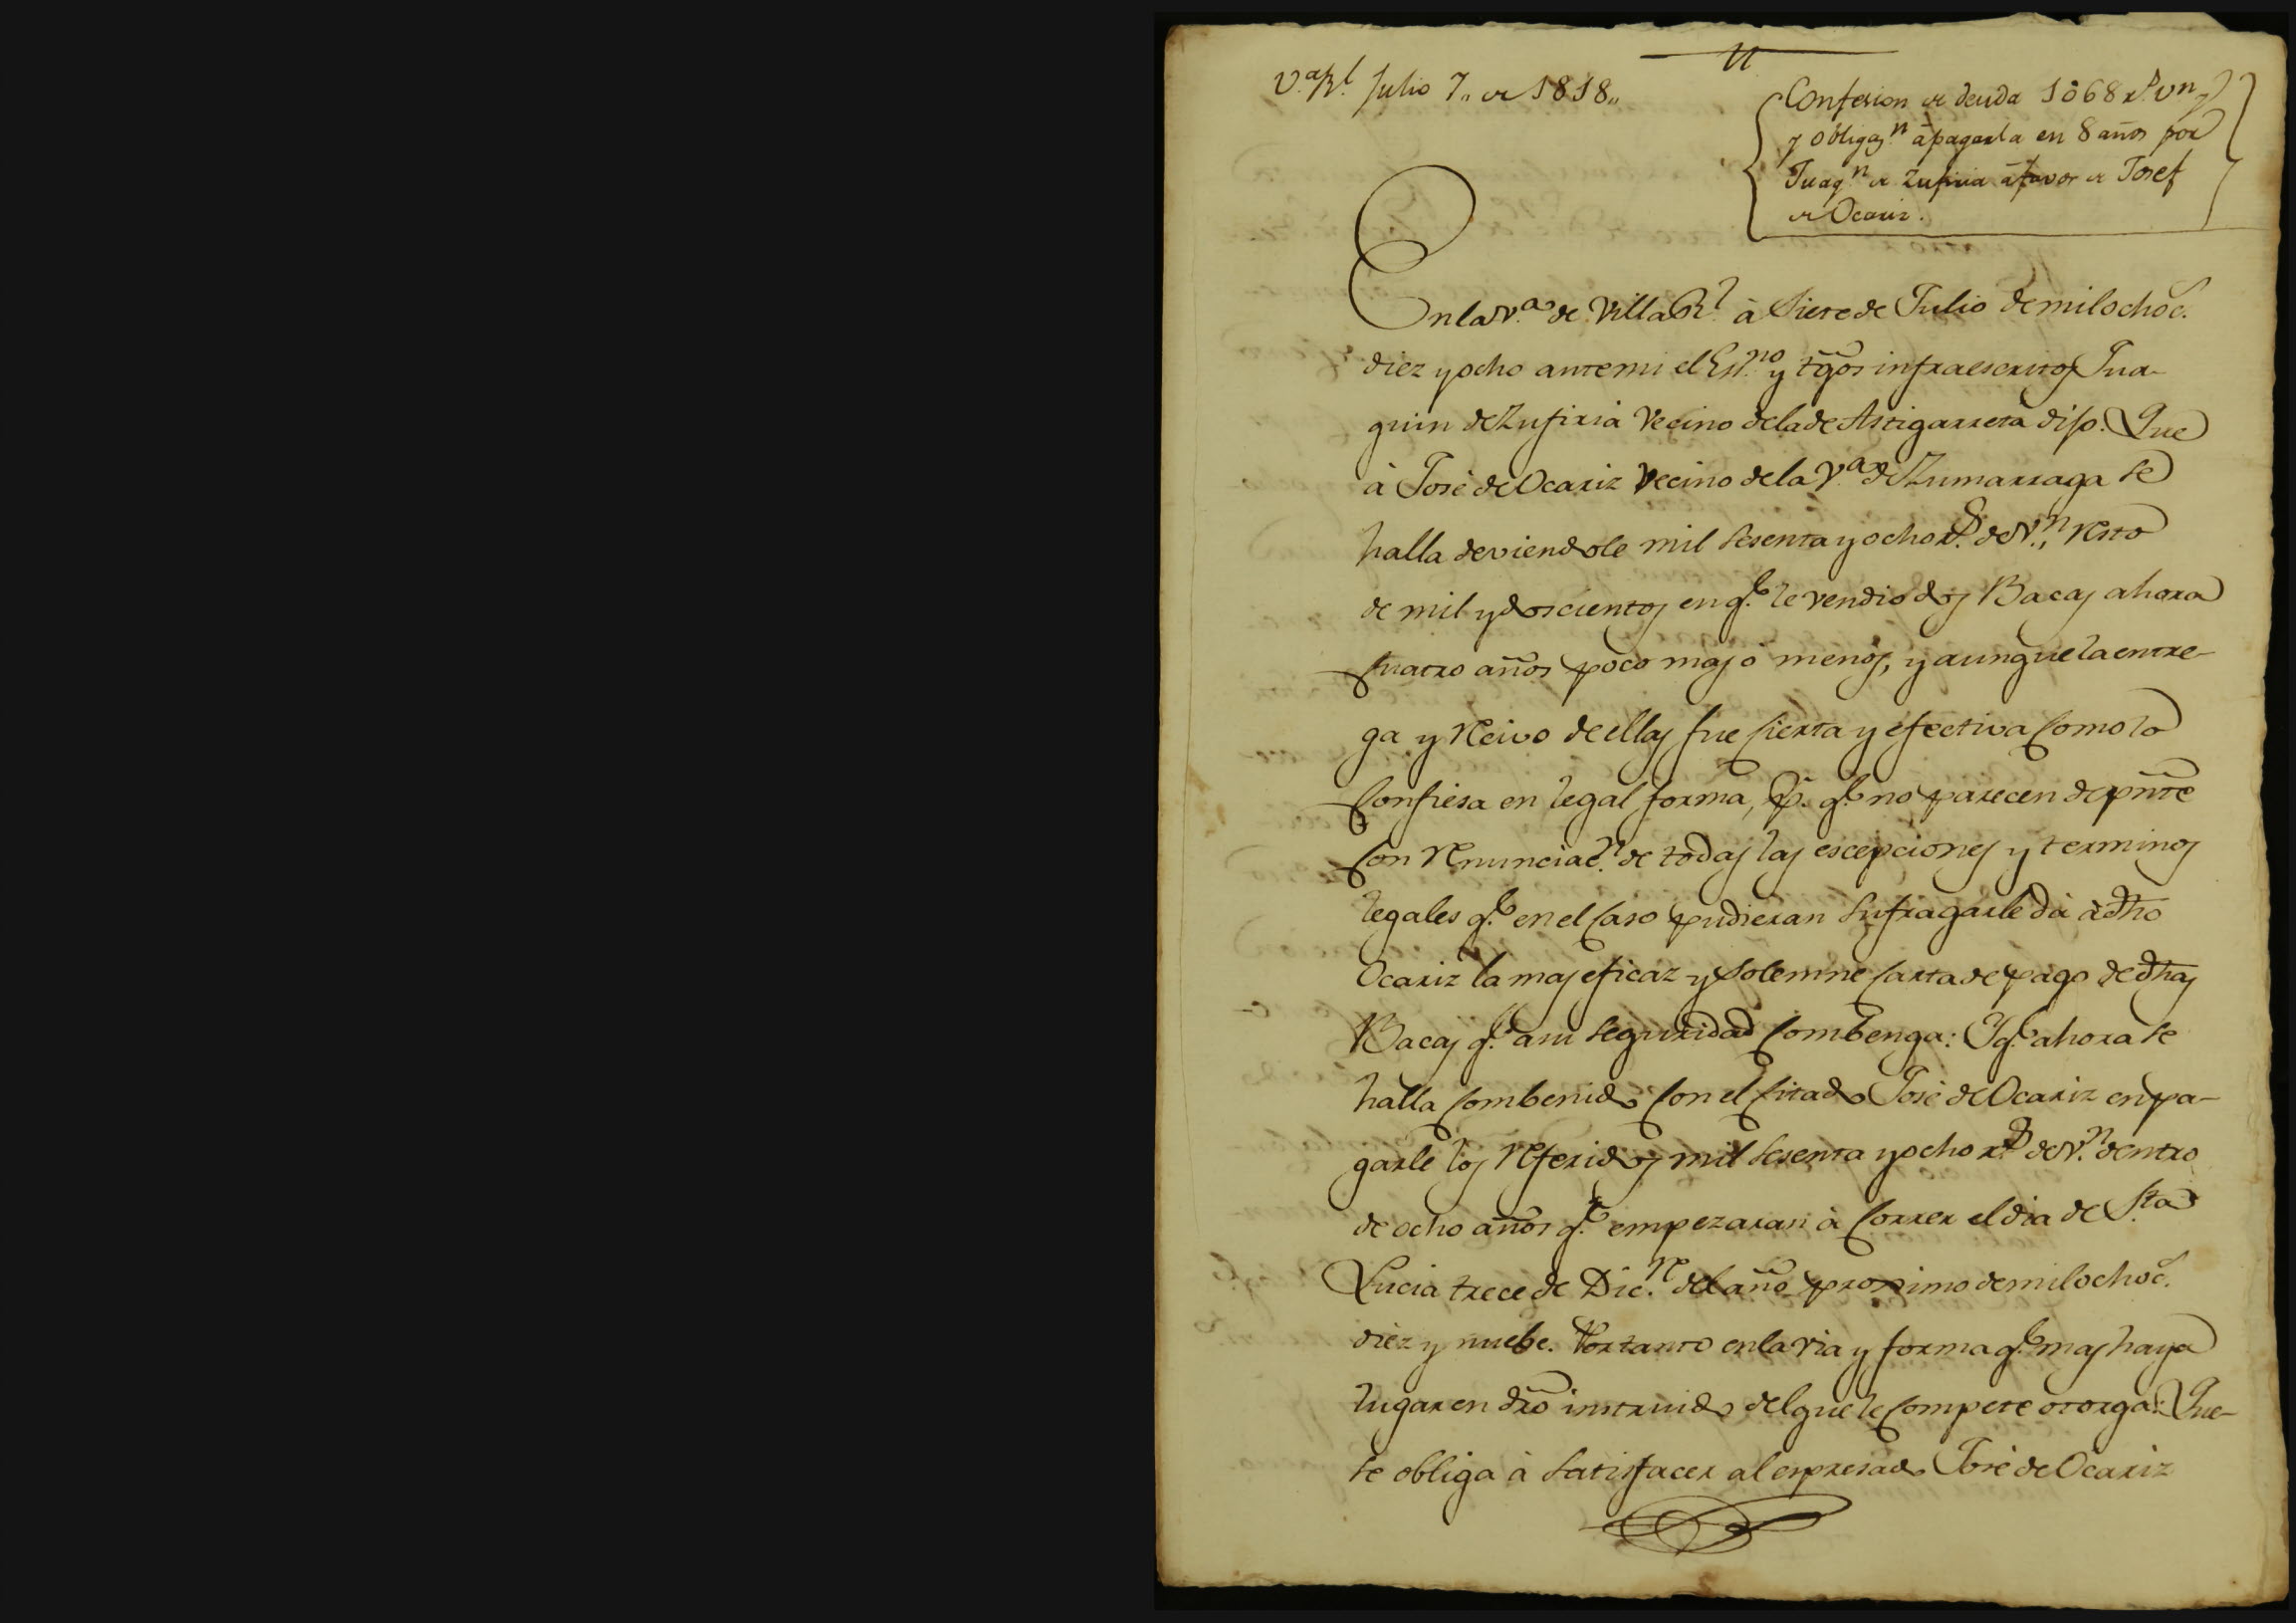 V.ª R.l Julio 7,, de 1818,,
Confesion de deuda 1068 r.s v.n
y obligaz.n à pagarla en 8 años por
Juaq.n de Zufiria à favor de Josef
de Ocariz.
En la V.ª de Villa R.l à Siete de Julio de mil ochoc.s
diez y ocho ante mi el Es.no y tgõs infraescritos Jua-
quin de Zufiria Vecino de la de Astigarreta dijo. Que
à José de Ocariz Vecino de la V.ª de Zumarraga se
halla deviendole mil sesenta y ocho r.s de V.n, resto
de mil y doscientos en q.e le vendio dos Bacas ahora
cuatro años poco mas ò menos, y aunque la entre-
ga y recivo de ellas fue cierta y efectiva como lo
confiesa en legal forma, p.r q.e no parecen de pñte
con renunciac.n de todas las escepciones y terminos
legales q.e en el caso pudieran sufragarle dà à dho
Ocariz la mas eficaz y solemne carta de pago de dhas
Bacas q.e a su seguridad combenga: Y q.e ahora se
halla combenido con el citado José de Ocariz en pa-
garle los referidos mil sesenta y ocho r.s de V.n dentro
de ocho años q.e empezaran à correr el dia de S.ta
Lucia trece de Dic.re del año proximo de mil ochoc.s
diez y nuebe. Por tanto en la via y forma q.e mas haya
lugar en dro instruido del que le compete otorga: Que
se obliga à satisfacer al expresado José de Ocariz